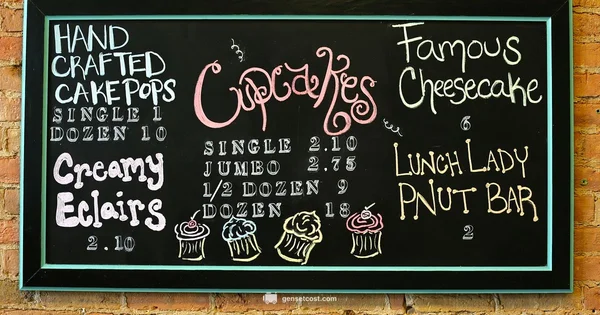 HAND
CRAFTED
CAKEPOPS
SINGLE 1
DOZEN 10
Creamy
Eclairs
2.10
Cupcakes
SINGLE 2.10
JUMBO 2.75
1/2 DOZEN 9
DOZEN 18
Famous
Cheesecake
6
LUNCH LADY
PNUT BAR
2
gensetcost.com